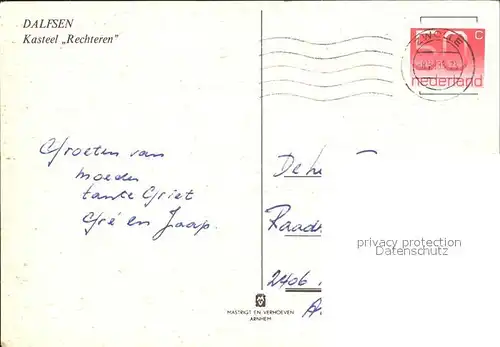 DALFSEN
Kasteel „Rechteren”
ZWOLLE
50 c
nederland
Groeten van
moeder
tante Griet
Gré en Jaap.
De
Raad
2406
A
privacy protection
Datenschutz
MASTRIGT EN VERHOEVEN
ARNHEM